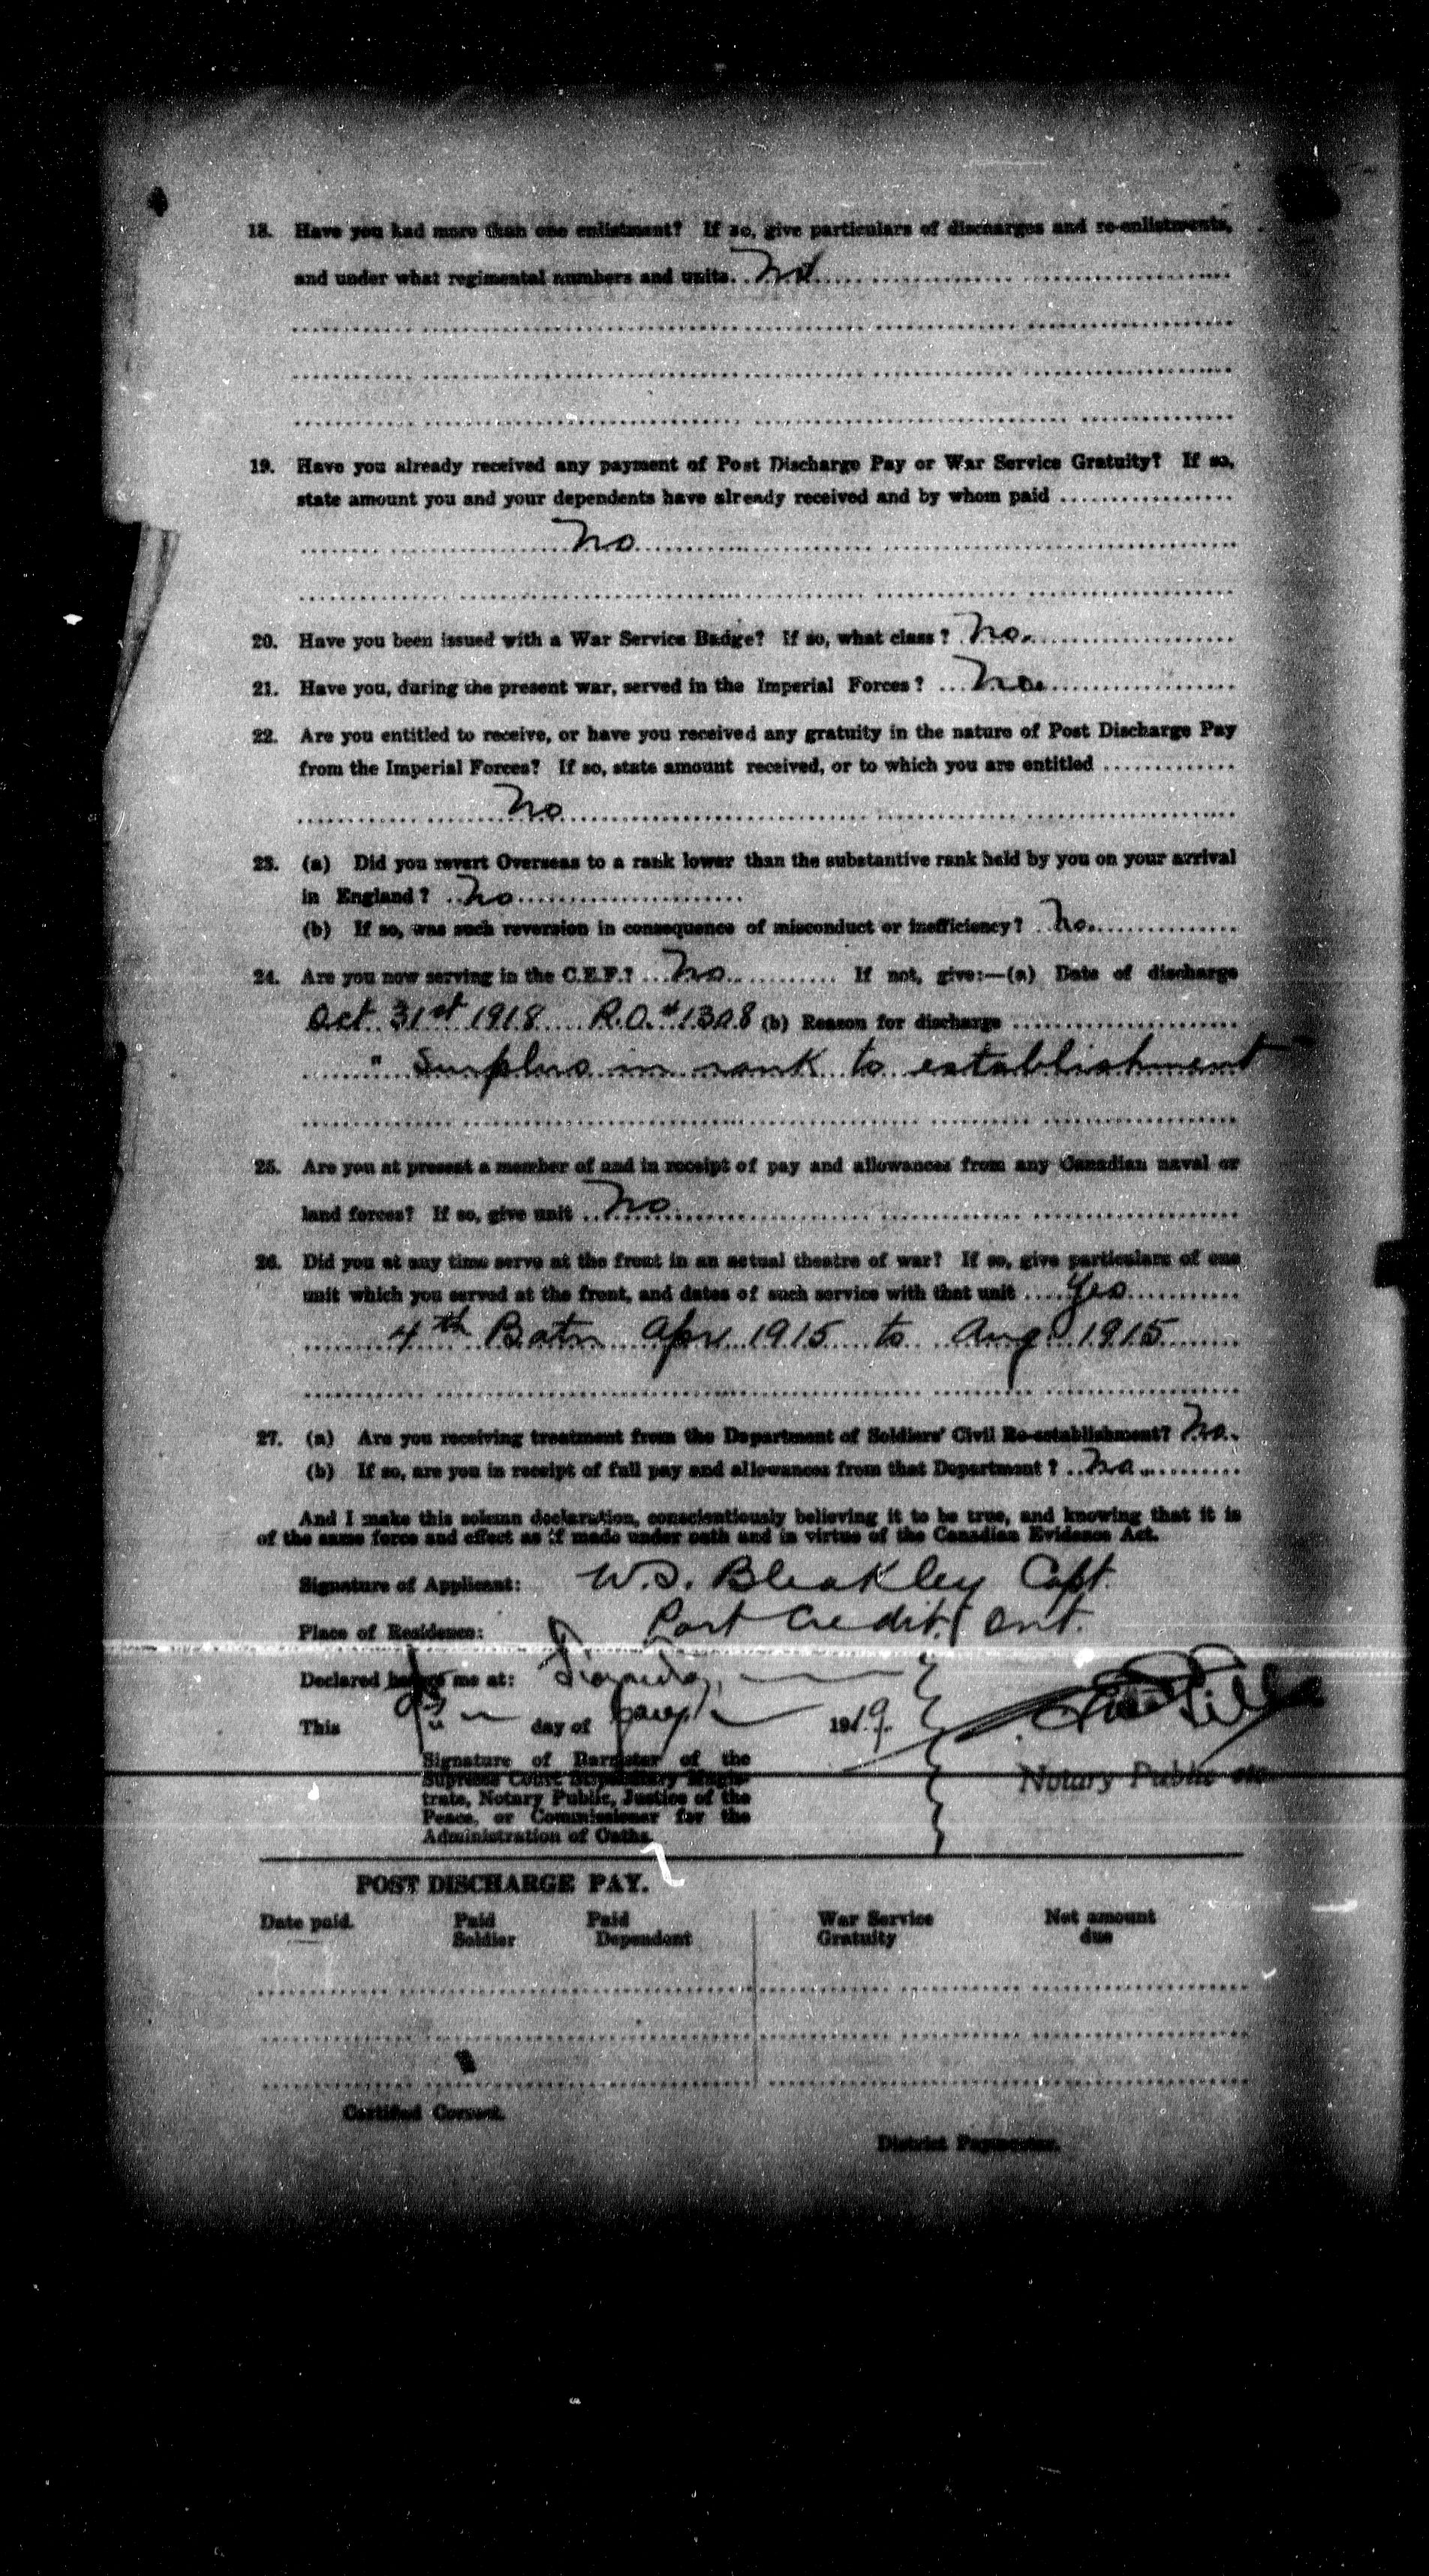 18. Have you had more than one enlistment? If so, give particulars of discharges and re-enlistments,
and under what regimental numbers and units.
19. Have you already received any payment of Post Discharge Pay or War Service Gratuity? If so,
state amount you and your dependents have already received and by whom paid
No
20. Have you been issued with a War Service Badge? If so, what class? No.
21. Have you, during the present war, served in the Imperial Forces? No.
22. Are you entitled to receive, or have you received any gratuity in the nature of Post Discharge Pay
from the Imperial Forces? If so, state amount received, or to which you are entitled
No
23. (a) Did you revert Overseas to a rank lower than the substantive rank held by you on your arrival
in England? No
(b) If so, was such reversion in consequence of misconduct or inefficiency? No.
24. Are you now serving in the C.E.F.? No. If not, give:—(a) Date of discharge
Oct 31st 1918 R.O. # 1308 (b) Reason for discharge
" Surplus in rank to establishment
25. Are you at present a member of and in receipt of pay and allowances from any Canadian naval or
land forces? If so, give unit No
26. Did you at any time serve at the front in an actual theatre of war? If so, give particulars of one
unit which you served at the front, and dates of such service with that unit Yes
4th Batn Apr 1915 to Aug 1915
27. (a) Are you receiving treatment from the Department of Soldiers' Civil Re-establishment? No.
(b) If so, are you in receipt of full pay and allowances from that Department? No.
And I make this solemn declaration, conscientiously believing it to be true, and knowing that it is
of the same force and effect as if made under oath and in virtue of the Canadian Evidence Act.
Signature of Applicant: W.S. Bleakley Capt.
Place of Residence: Port Credit, Ont.
Declared before me at:
This day of 1919.
Signature of Barrister of the
Supreme Court, Stipendiary Magis-
trate, Notary Public, Justice of the
Peace, or Commissioner for the
Administration of Oaths.
Notary Public etc
POST DISCHARGE PAY.
Date paid. Paid Soldier Paid Dependent War Service Gratuity Net amount due
Certified Correct.
District Paymaster.